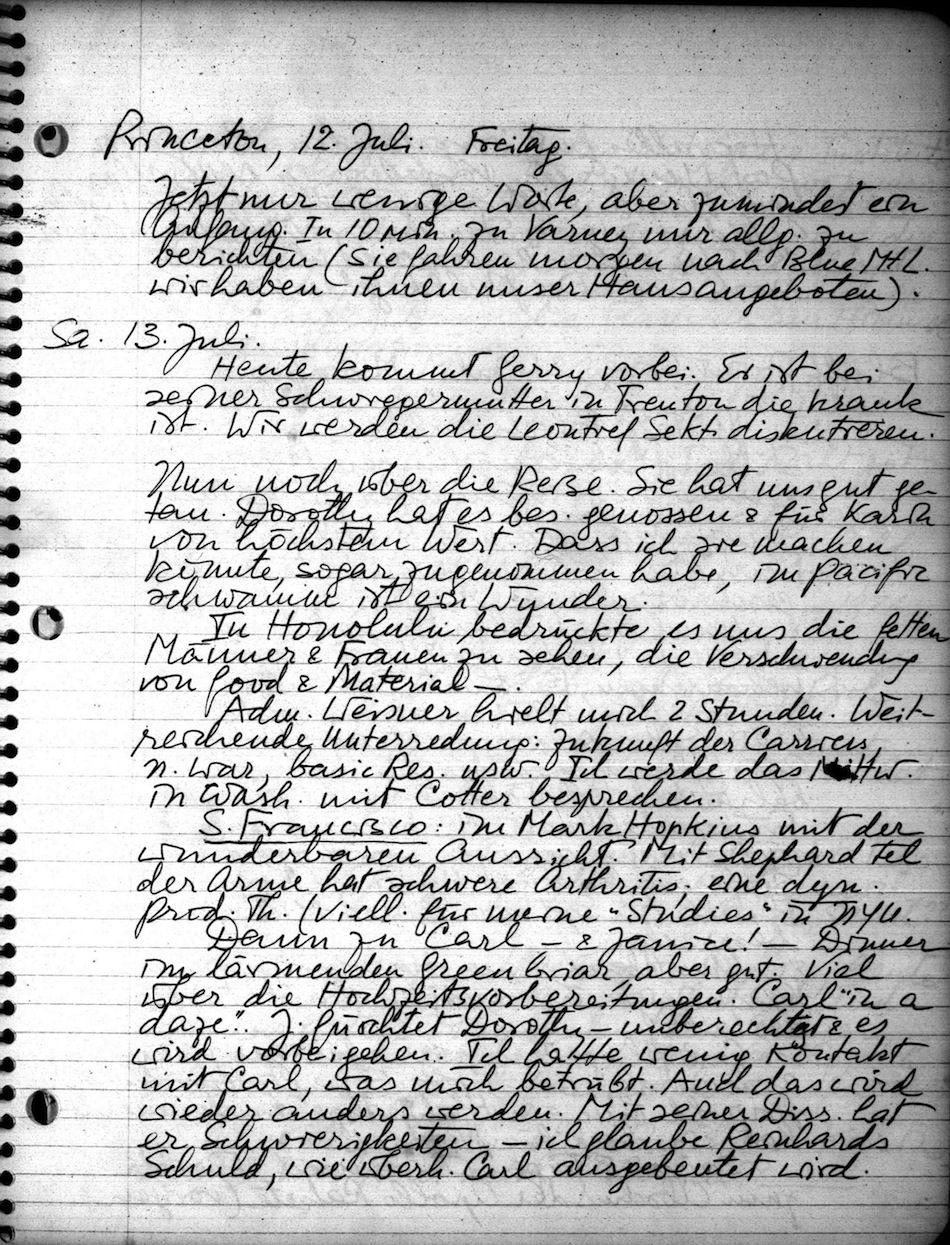 Princeton, 12. Juli. Freitag.
Jetzt nur wenige Worte, aber zumindest ein
Anfang. In 10 min. zu Varney nur allg. zu
berichten (sie fahren morgen nach Blue Mt L.
wir haben ihnen unser Haus angeboten).
Sa. 13. Juli.
Heute kommt Gerry vorbei. Er ist bei
seiner Schwiegermutter in Trenton die krank
ist. Wir werden die Sekt. diskutieren.
Nun noch über die Reise. Sie hat uns gut ge-
tan. Dorothy hat es bes. genossen & für Karin
von höchstem Wert. Dass ich sie machen
konnte, sogar zugenommen habe, im Pacific
schwamm ist ein Wunder.
In Honolulu bedrückte es uns die fetten
Männer & Frauen zu sehen, die Verschwendung
von food & Material —.
Adm. Weisner hielt mich 2 Stunden. Weit-
reichende Unterredung: Zukunft der Carriers,
n. war, basic Res. usw. Ich werde das Mittw.
in Wash. mit Cotter besprechen.
S. Francisco: im Mark Hopkins mit der
wunderbaren Aussicht. Mit Shephard tel
der Arme hat schwere Arthritis; eine dyn.
Prod. Th. (viell. für meine "Studies" in NYU.
Dann zu Carl — & Janice! — Dinner
im lärmenden Greenbriar, aber gut. Viel
über die Hochzeitsvorbereitungen. Carl "in a
daze". J. fürchtet Dorothy – unberechtigt & es
wird vorbeigehen. Ich hatte wenig Kontakt
mit Carl, was mich betrübt. Auch das wird
wieder anders werden. Mit seiner Diss. hat
er Schwierigkeiten – ich glaube Reinhards
Schuld, wie überh. Carl ausgebeutet wird.